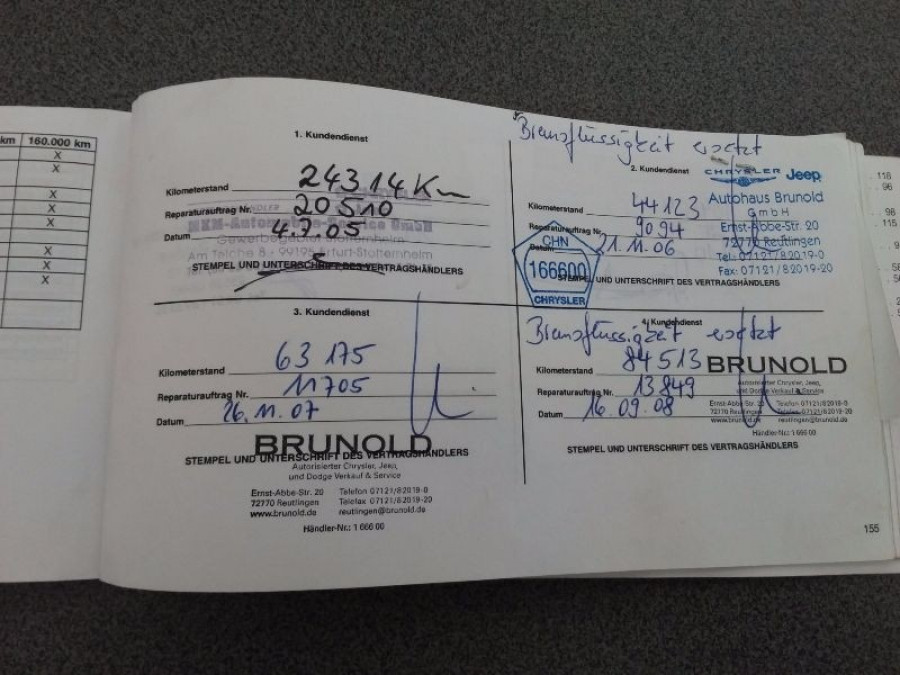 km 160.000 km
X
X
X
X
X
X
X
1. Kundendienst
Kilometerstand 24314 Km
Reparaturauftrag Nr. 20510
Datum 4.7.05
Gewerbegebiet Stotternheim
Am Teiche 8 - 99195 Erfurt-Stotternheim
STEMPEL UND UNTERSCHRIFT DES VERTRAGSHÄNDLERS
Bremsflüssigkeit ersetzt
2. Kundendienst
CHRYSLER Jeep
Autohaus Brunold
GmbH
Ernst-Abbe-Str. 20
72770 Reutlingen
Tel. 07121/82019-0
Fax: 07121/82019-20
Kilometerstand 44123
Reparaturauftrag Nr. 9094
Datum 21.11.06
CHN
166600
CHRYSLER
STEMPEL UND UNTERSCHRIFT DES VERTRAGSHÄNDLERS
3. Kundendienst
Kilometerstand 63175
Reparaturauftrag Nr. 11705
Datum 26.11.07
BRUNOLD
STEMPEL UND UNTERSCHRIFT DES VERTRAGSHÄNDLERS
Autorisierter Chrysler, Jeep,
und Dodge Verkauf & Service
Ernst-Abbe-Str. 20 Telefon 07121/82019-0
72770 Reutlingen Telefax 07121/82019-20
www.brunold.de reutlingen@brunold.de
Händler-Nr.: 1 666 00
4. Kundendienst
Bremsflüssigkeit ersetzt
Kilometerstand 84513
BRUNOLD
Autorisierter Chrysler, Jeep,
und Dodge Verkauf & Service
Reparaturauftrag Nr. 13849
Datum 16.09.08
Ernst-Abbe-Str. 20 Telefon 07121/82019-0
72770 Reutlingen Telefax 07121/82019-20
www.brunold.de reutlingen@brunold.de
Händler-Nr.: 1 666 00
STEMPEL UND UNTERSCHRIFT DES VERTRAGSHÄNDLERS
155
118
96
98
115